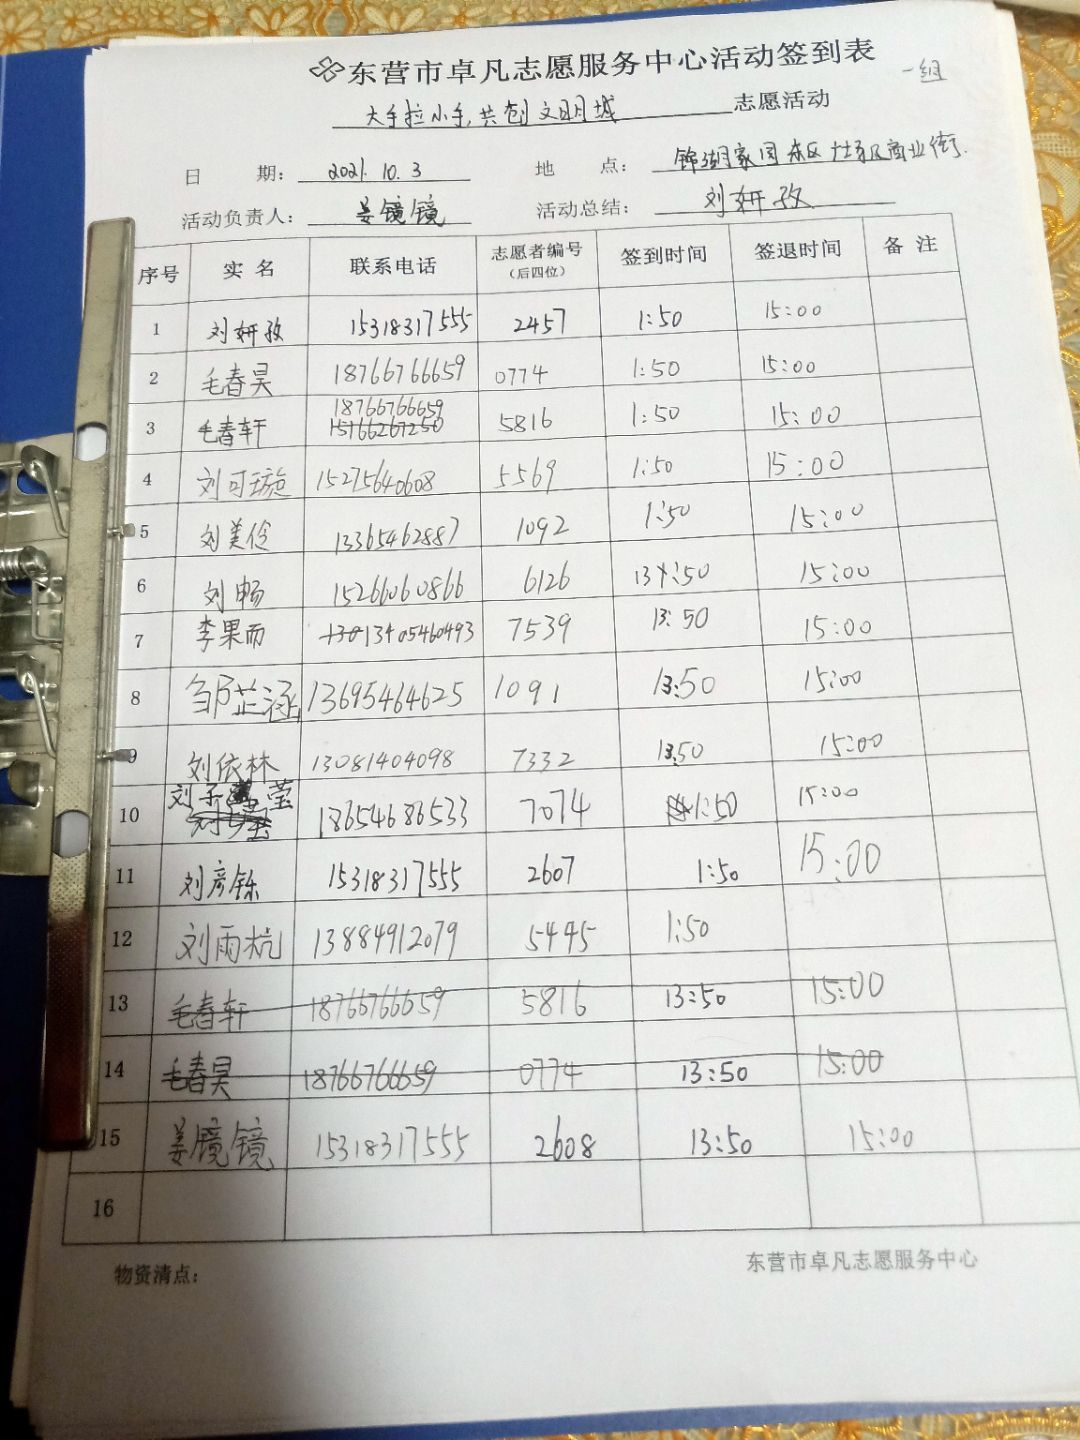 东营市卓凡志愿服务中心活动签到表
一组
大手拉小手,共创文明城 志愿活动
日 期: 2021.10.3 地 点: 锦湖家园东区广场及商业街.
活动负责人: 姜镜镜 活动总结: 刘妍孜
序号 实 名 联系电话 志愿者编号 签到时间 签退时间 备 注
(后四位)
1 刘妍孜 15318317555 2457 1:50 15:00
2 毛春昊 18766766659 0774 1:50 15:00
3 毛春轩 18766766659 15166267250 5816 1:50 15:00
4 刘可璇 15275640608 5569 1:50 15:00
5 刘美伶 13365462887 1092 1:50 15:00
6 刘畅 15266060866 6126 13:50 15:00
7 李果而 13405460493 7539 13:50 15:00
8 邹芷涵 13695464625 1091 13:50 15:00
9 刘依林 13081404098 7332 13:50 15:00
10 刘子莹 18654686533 7074 1:50 15:00
11 刘彦铄 15318317555 2607 1:50 15:00
12 刘雨杭 13884912079 5445 1:50
13 毛春轩 18766766659 5816 13:50 15:00
14 毛春昊 18766766659 0774 13:50 15:00
15 姜镜镜 15318317555 2608 13:50 15:00
16
物资清点: 东营市卓凡志愿服务中心